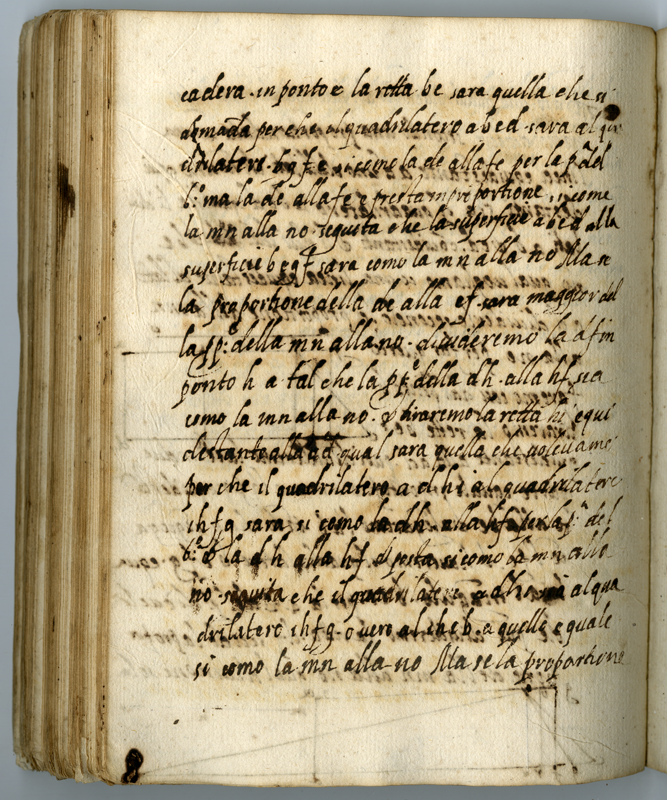 cadera in ponto e la retta be sara quella che si
domāda per che il quadrilatero abed sara al qua
drilatero bgfe si como la de alla fe per la pª del
6º ma la de alla fe e posta in proportione si come
la mn alla no seguita che la superficie abed alla
superficie begf sara como la mn alla no Ma se
la proportione della de alla ef sara maggior del
la ppº della mn alla no divideremo la df in
ponto h a tal che la ppº della dh alla hf sia
como la mn alla no & tiraremo la retta hi equi
distante alla ad qual sara quella che volevamo
per che il quadrilatero a dhi al quadrilatero
ihfg sara si como la dh alla hf per la pª del
6º & la dh alla hf e posta si como la mn alla
no seguita che il quadrilatero adhi al qua
drilatero ihfg overo al a quello equale
si como la mn alla no Ma se la proportione